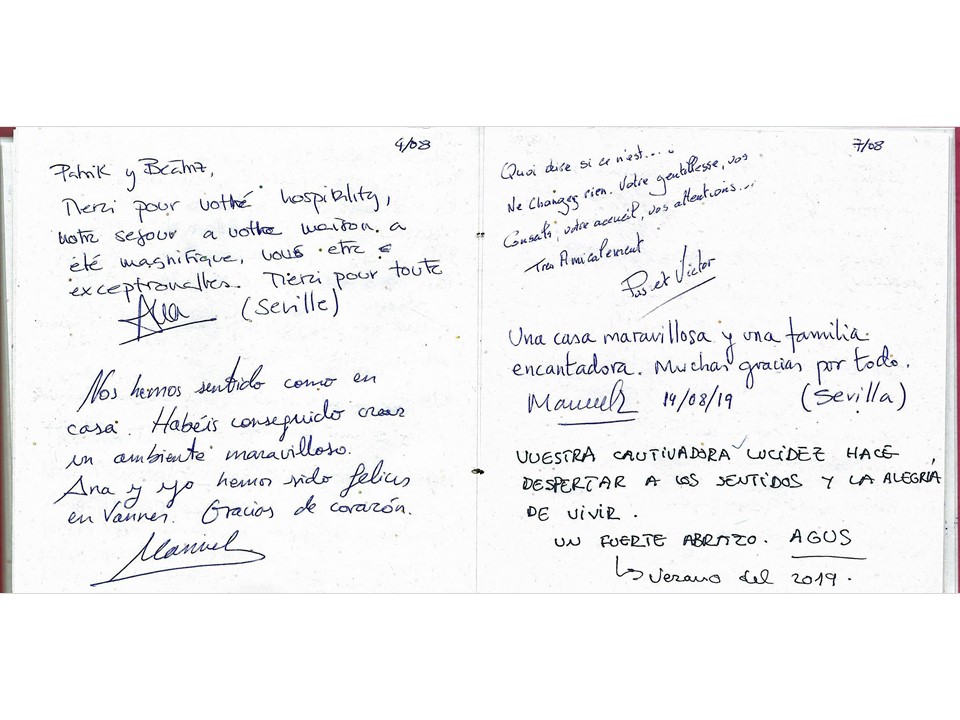 4/08
Patrik y Beatriz,
Merci pour votre hospitality,
notre sejour a votre maison a
été magnifique, vous etre
exceptronalles. Merci pour toute
Ana (Seville)
Nos hemos sentido como en
casa. Habéis conseguido crear
un ambiente maravilloso.
Ana y yo hemos sido felices
en Vannes. Gracias de corazón.
Manuel
7/08
Quoi dire si ce n'est....
Ne changez rien. Votre gentillesse, vos
Conseils, votre accueil, vos attentions...
Tres Amicalement
et Victor
Una casa maravillosa y una familia
encantadora. Muchas gracias por todo.
Manuel 14/08/19 (Sevilla)
VUESTRA CAUTIVADORA LUCIDEZ HACE
DESPERTAR A LOS SENTIDOS Y LA ALEGRIA
DE VIVIR.
UN FUERTE ABRAZO. AGUS
↳ Verano del 2019.